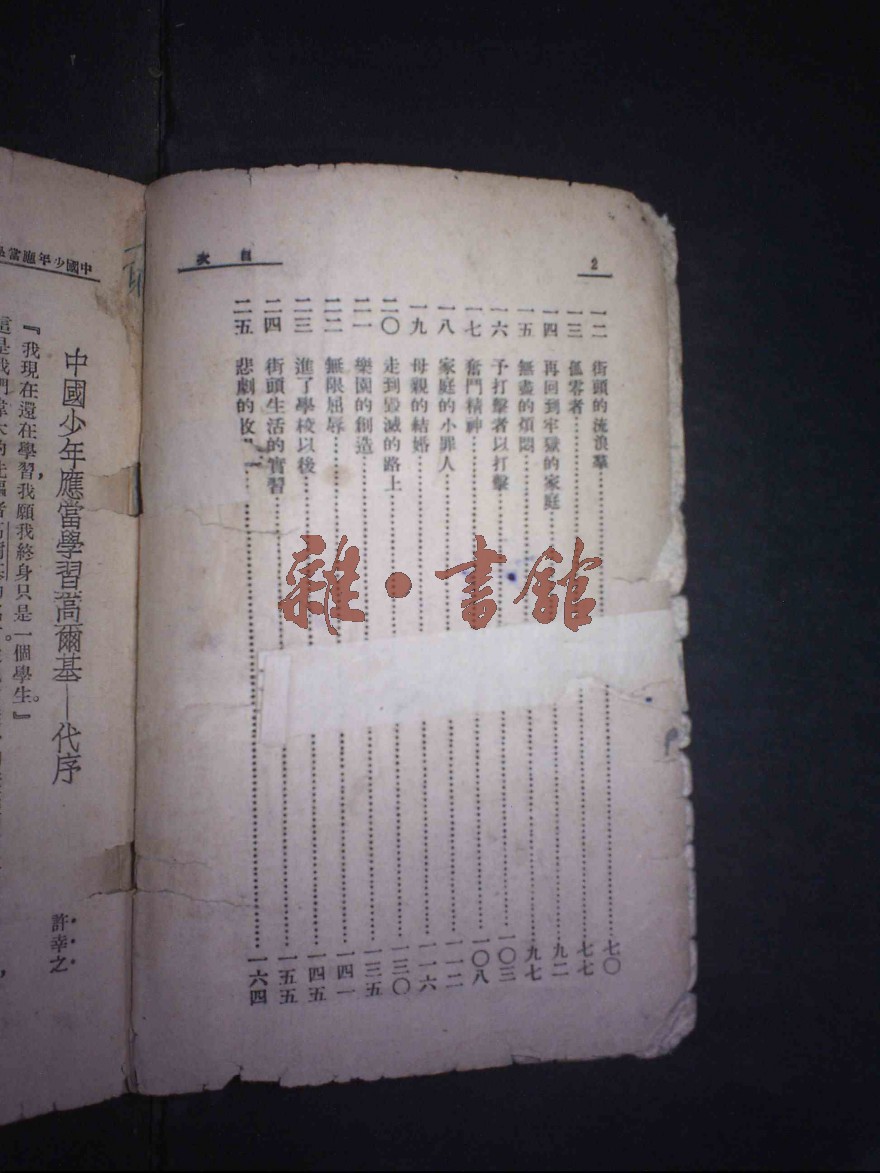 2
目次
一二 街頭的流浪羣……七〇
一三 孤零者……七七
一四 再回到牢獄的家庭……九二
一五 無盡的煩悶……九七
一六 予打擊者以打擊……一〇三
一七 奮鬥精神……一〇八
一八 家庭的小罪人……一一二
一九 母親的結婚……一一六
二〇 走到毀滅的路上……一三〇
二一 樂園的創造……一三五
二二 無限屈辱……一四一
二三 進了學校以後……一四五
二四 街頭生活的實習……一五五
二五 悲劇的收……一六四
雜·書館
中國少年應當
中國少年應當學習高爾基——代序
許幸之
『我現在還在學習，我願我終身只是一個學生。』
這是我們偉大的先驅者高爾基的